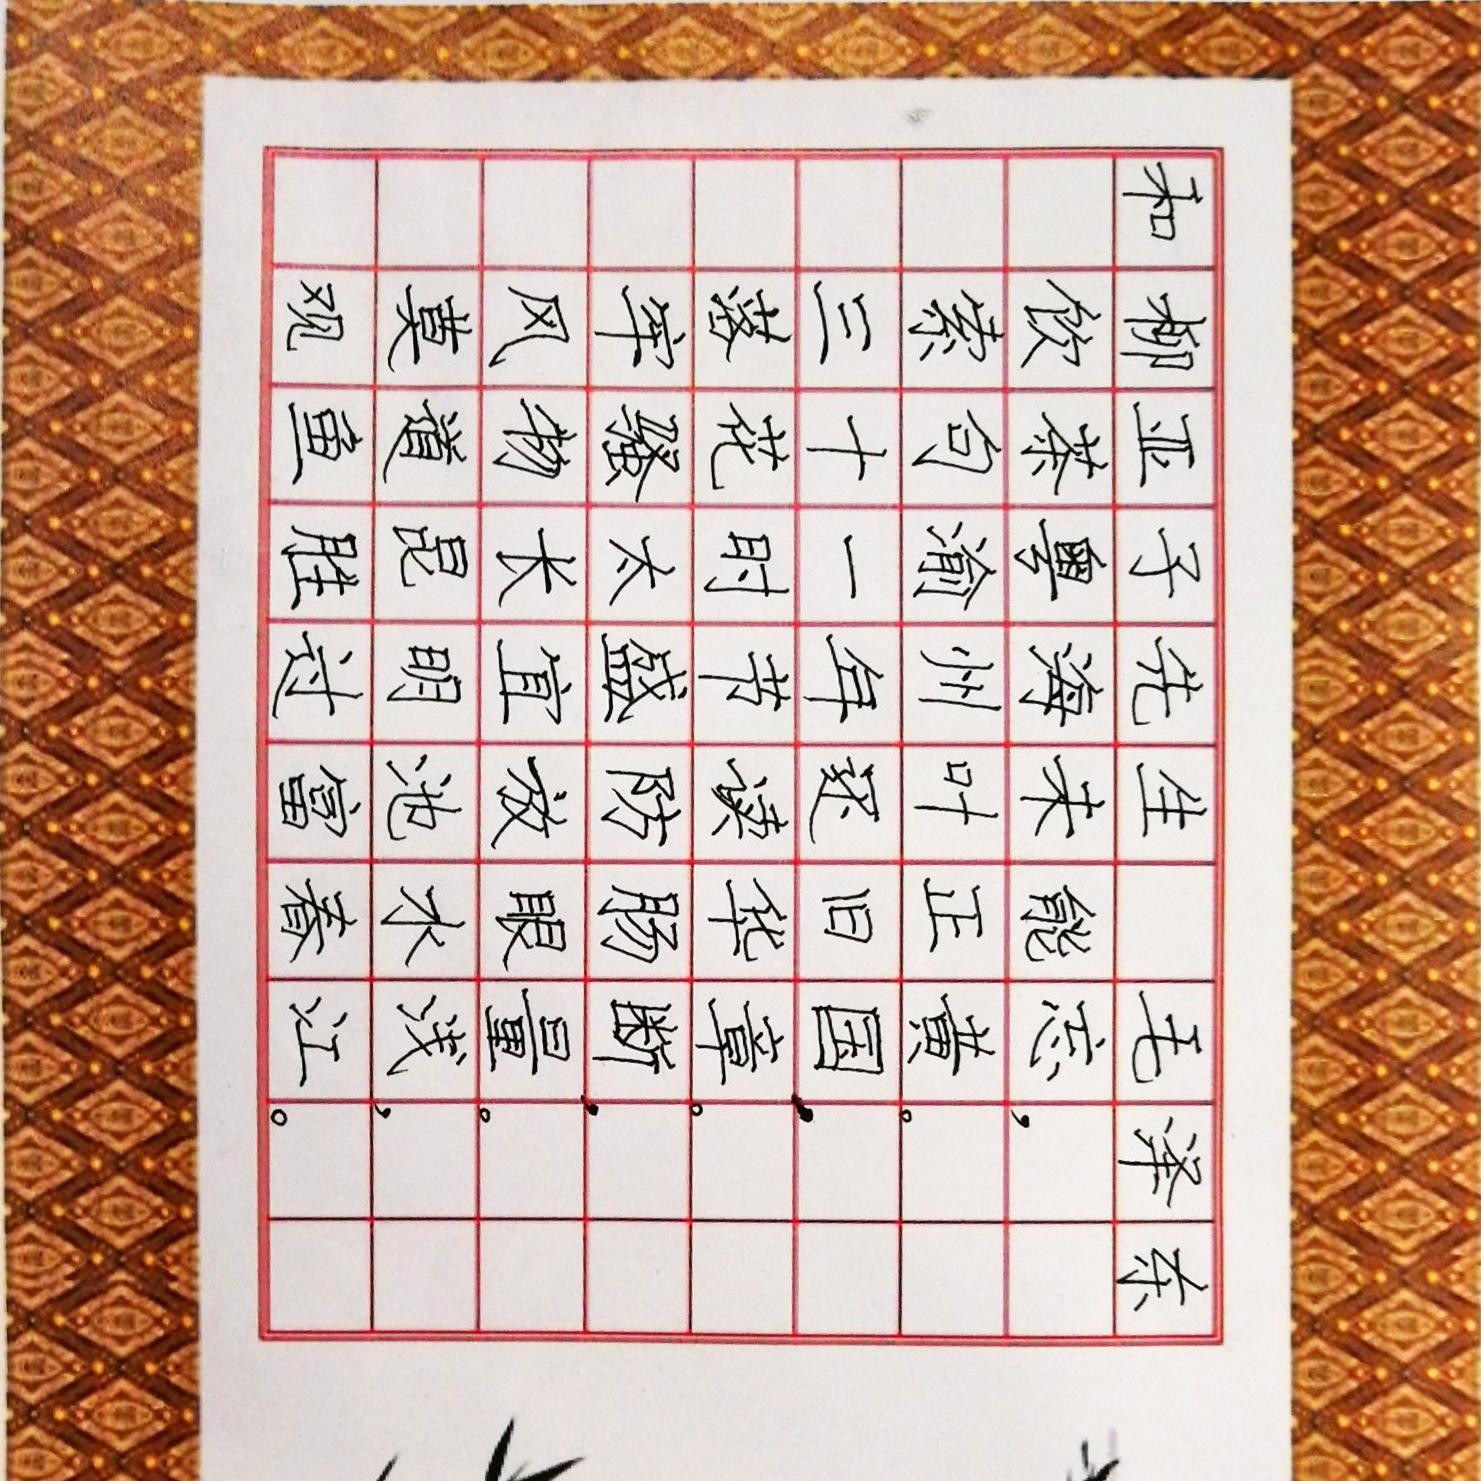 和柳亚子先生 毛泽东
饮茶粤海未能忘，
索句渝州叶正黄。
三十一年还旧国，
落花时节读华章。
牢骚太盛防肠断，
风物长宜放眼量。
莫道昆明池水浅，
观鱼胜过富春江。